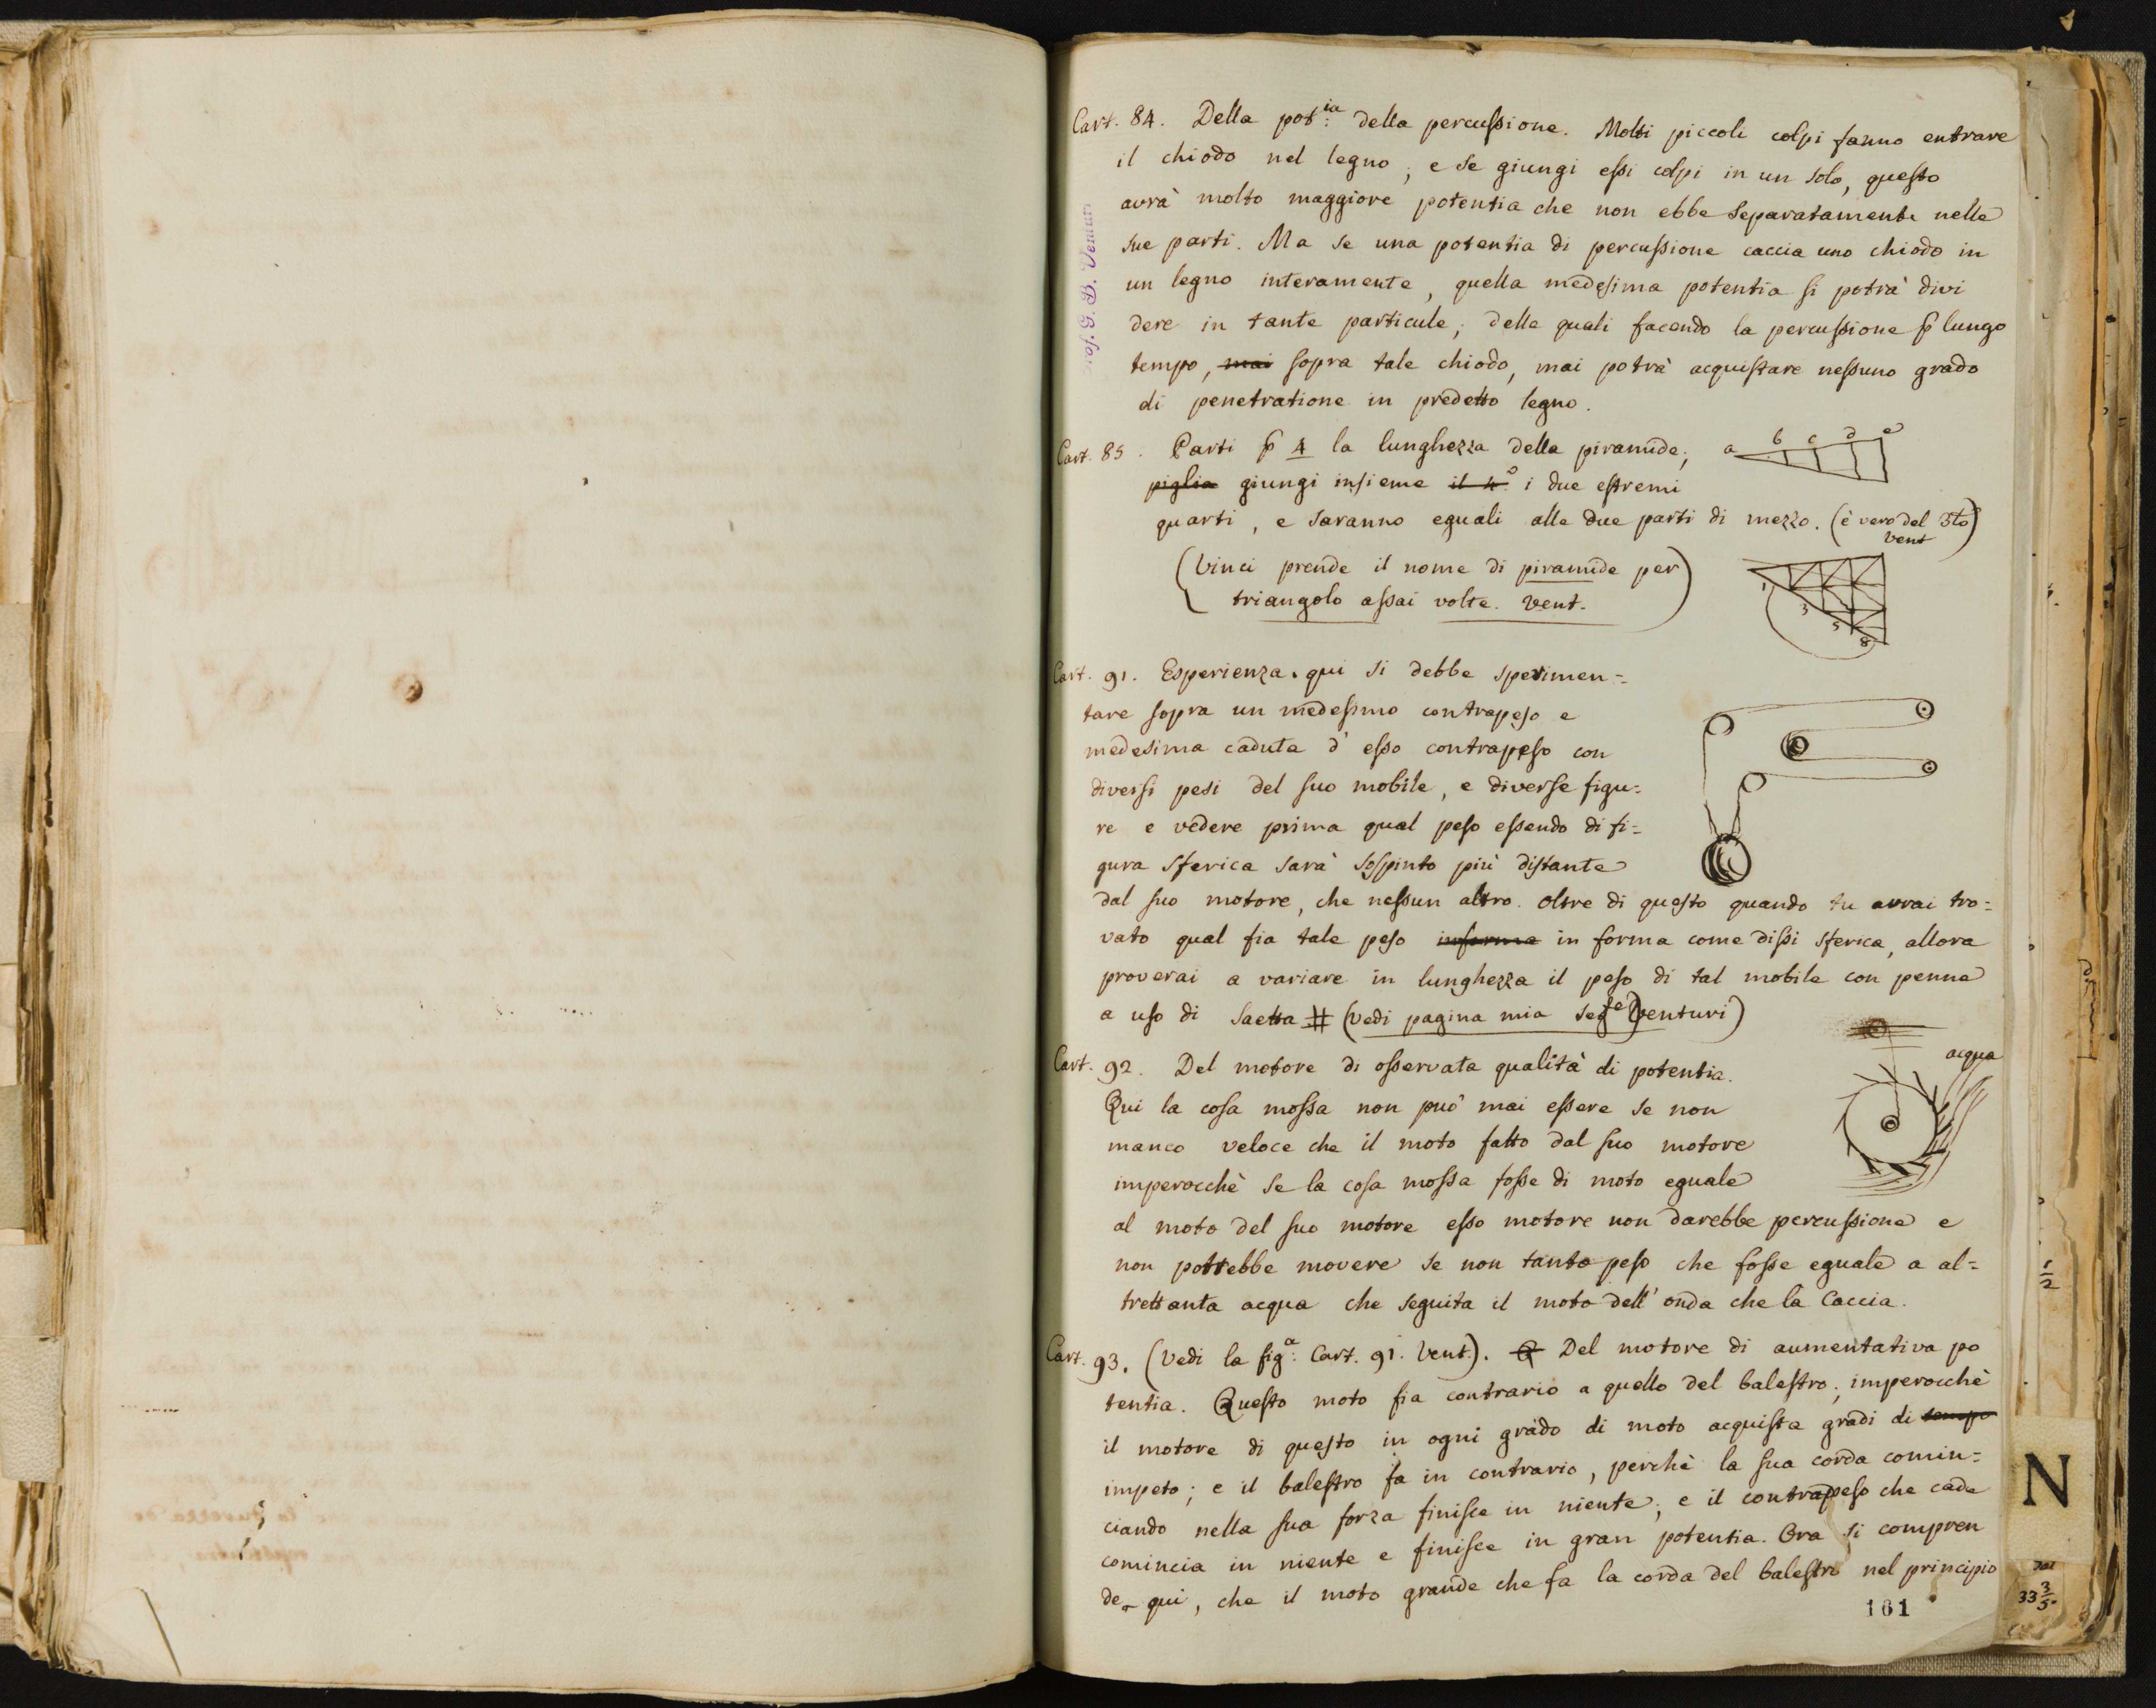 Cart. 84. Della pot:ia della percussione. Molti piccoli colpi fanno entrare
il chiodo nel legno; e se giungi essi colpi in un solo, questo
avrà molto maggiore potentia che non ebbe separatamente nelle
sue parti. Ma se una potentia di percussione caccia uno chiodo in
un legno interamente, quella medesima potentia si potrà divi
dere in tante particule; delle quali facendo la percussione p lungo
tempo, mai sopra tale chiodo, mai potrà acquistare nessuno grado
di penetratione in predetto legno.
Cart. 85. Parti p 4 la lunghezza della piramide;
a b c d e
piglia giungi insieme il 4.o i due estremi
quarti, e saranno eguali alle due parti di mezzo. (è vero del 3lo
vent)
(Vinci prende il nome di piramide per
triangolo assai volte. Vent.)
1 3 5 7 8
Cart. 91. Esperienza. qui si debbe sperimen=
tare sopra un medesimo contrapeso e
medesima caduta d'esso contrapeso con
diversi pesi del suo mobile, e diverse figu=
re e vedere prima qual peso essendo di fi=
gura sferica sarà sospinto più distante
dal suo motore, che nessun altro. oltre di questo quando tu avrai tro=
vato qual fia tale peso informa in forma come dissi sferica, allora
proverai a variare in lunghezza il peso di tal mobile con penne
a uso di saetta # (vedi pagina mia segte) Venturi)
Cart. 92. Del motore di osservata qualità di potentia.
acqua
Qui la cosa mossa non può mai essere se non
manco veloce che il moto fatto dal suo motore
imperocchè se la cosa mossa fosse di moto eguale
al moto del suo motore esso motore non darebbe percussione e
non potrebbe movere se non tanto peso che fosse eguale a al=
trettanta acqua che seguita il moto dell'onda che la caccia.
Cart. 93. (Vedi la fig:a Cart. 91. Vent.). Q Del motore di aumentativa po
tentia. Questo moto fia contrario a quello del balestro; imperocchè
il motore di questo in ogni grado di moto acquista gradi di tempo
impeto; e il balestro fa in contrario, perchè la sua corda comin=
ciando nella sua forza finisce in niente; e il contrapeso che cade
comincia in niente e finisce in gran potentia. Ora si compren
de qui, che il moto grande che fa la corda del balestro nel principio
161
1/2
N
33 3/5